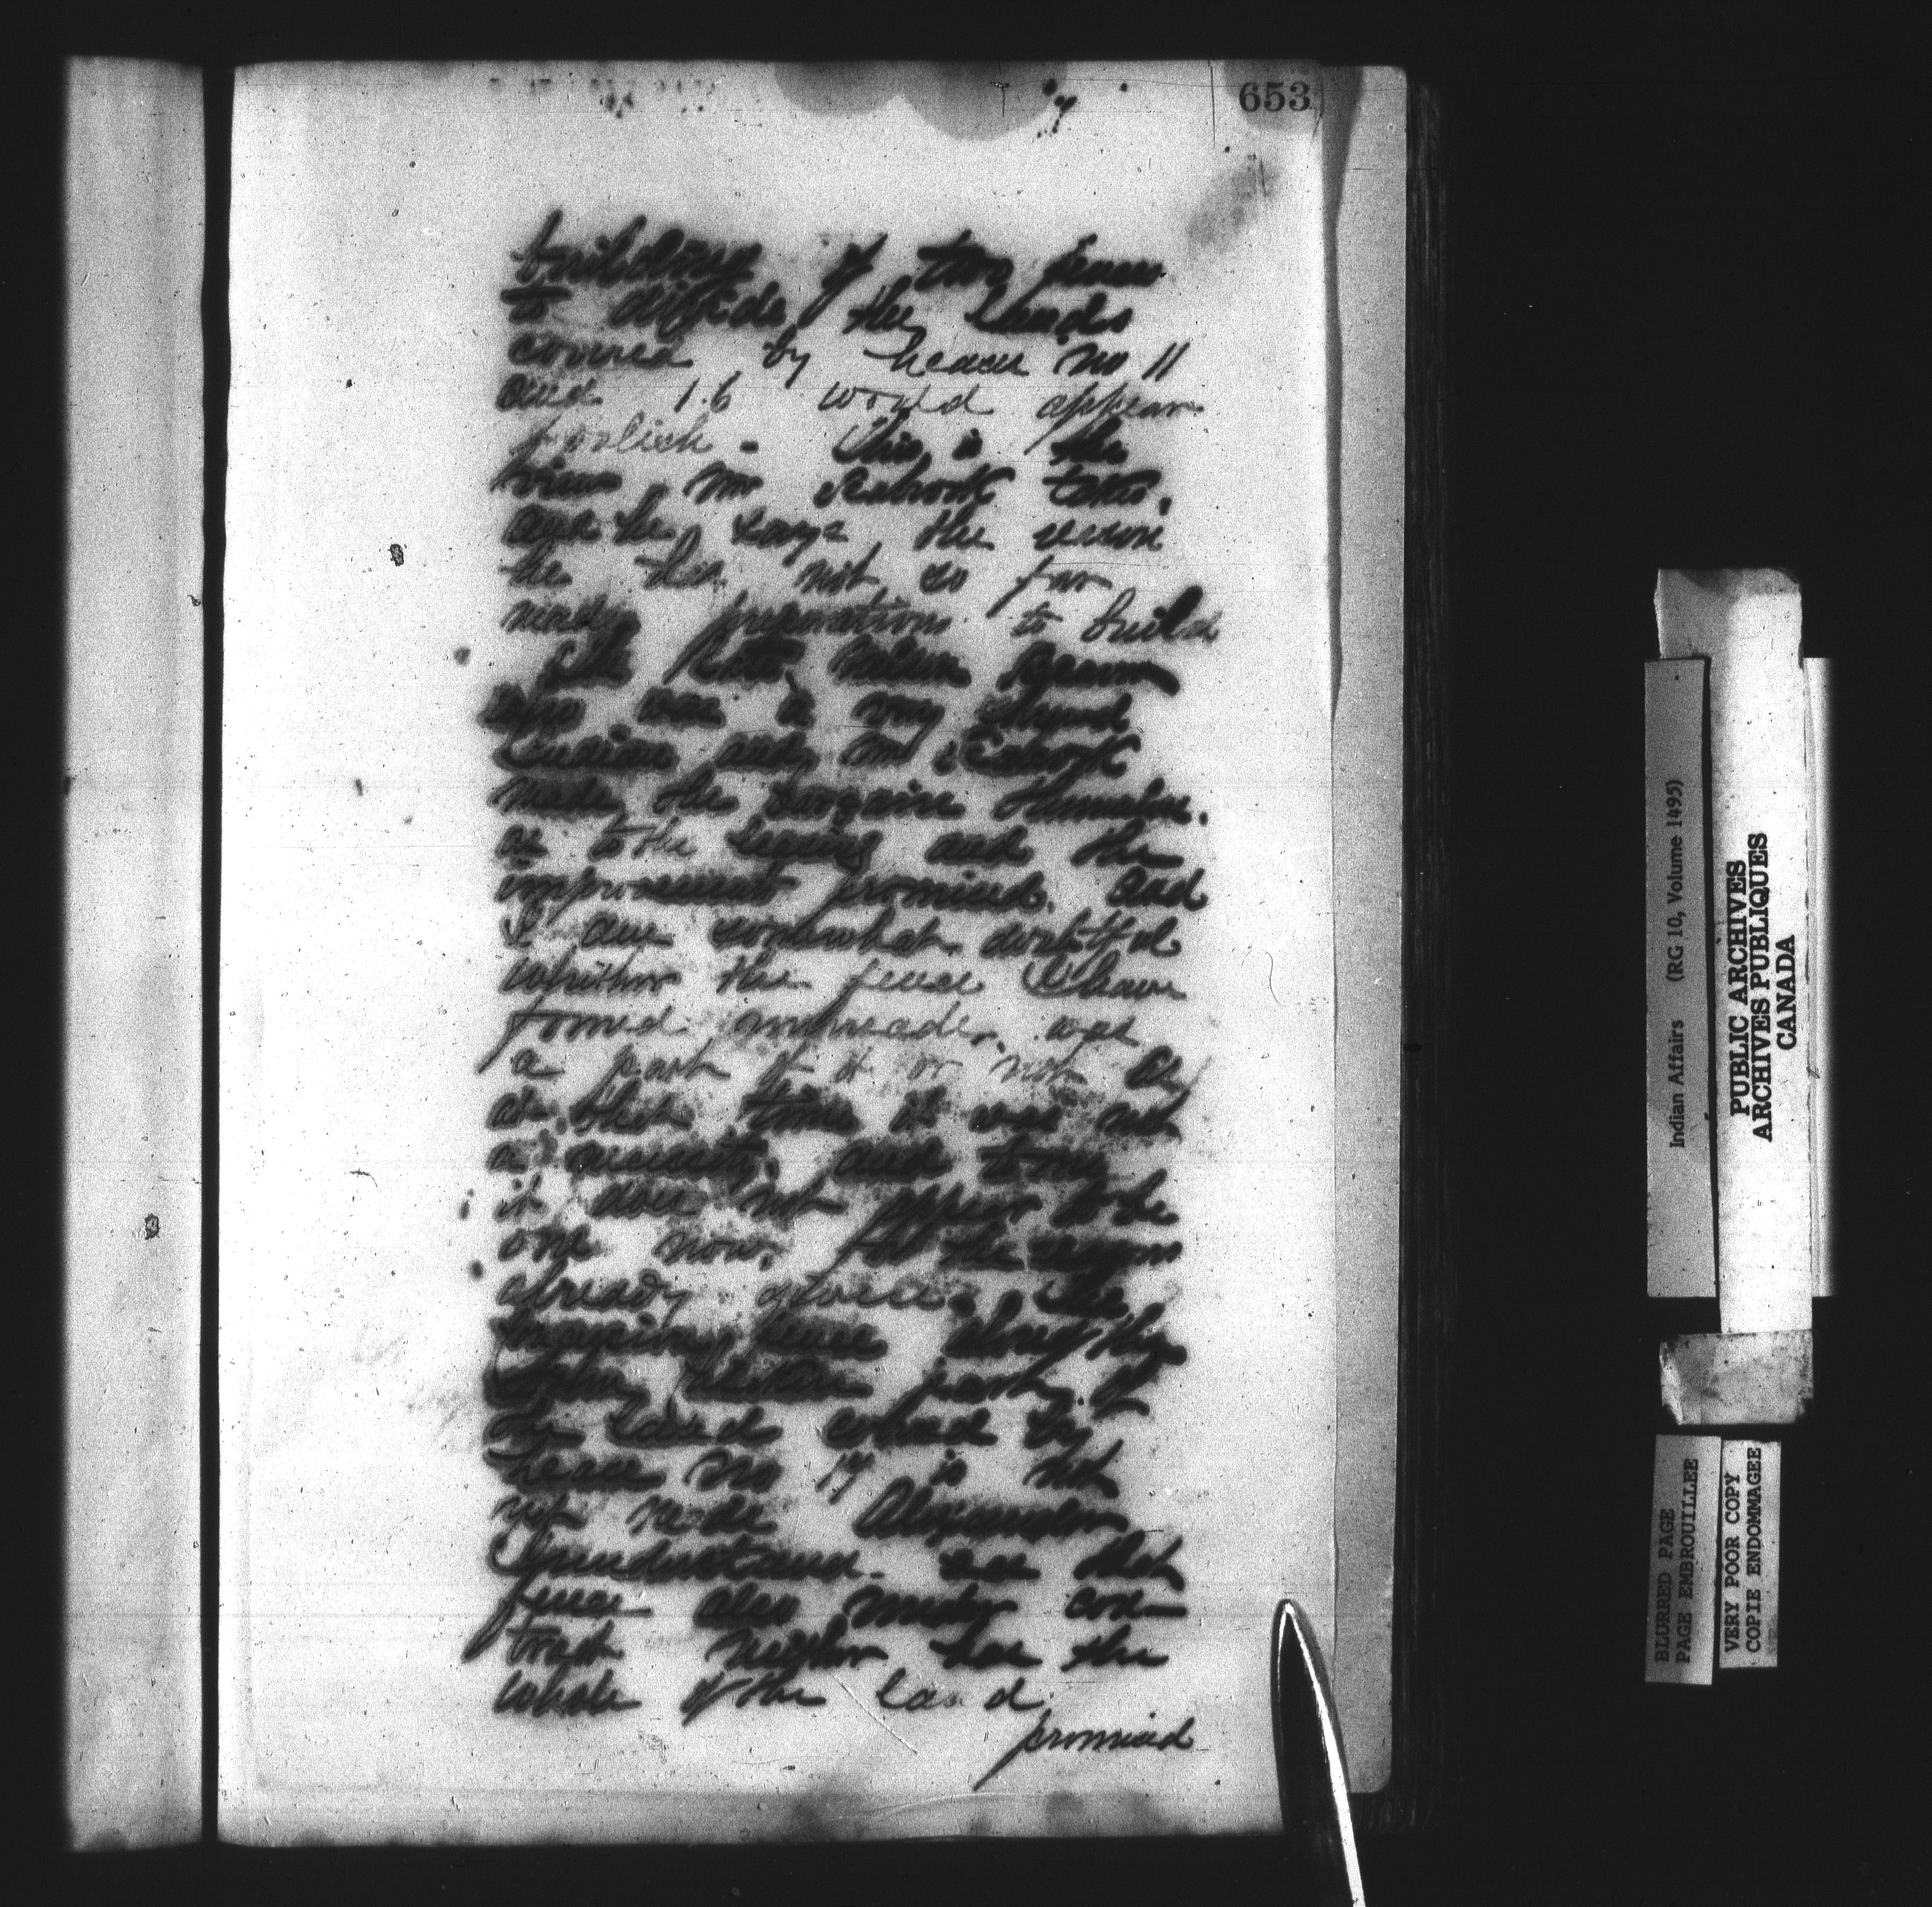 653
building of two fences
to divide the lands
covered by lease no 11
and 16 would appear
foolish - This is the
view Mr takes,
and he says the reason
he has not so far
made preparations to build
The late
was a very shrewd
Indian and Mr
made the bargain themselves.
as to the leasing and the
improvements promised. and
I am somewhat doubtful
whether the fence I have
found unmade, was
a part of it or not as
at that time it was not
a necessity. and to me
it does not appear to be
one now, for the reasons
already given. The
fence along the
part of
the land covered by
lease No 17 is not
yet made Alexander
I understand has that
fence also under con-
tract neither has the
whole of the land
promised
Indian Affairs (RG 10, Volume 1495)
PUBLIC ARCHIVES
ARCHIVES PUBLIQUES
CANADA
BLURRED PAGE
PAGE EMBROUILLEE
VERY POOR COPY
COPIE ENDOMMAGEE